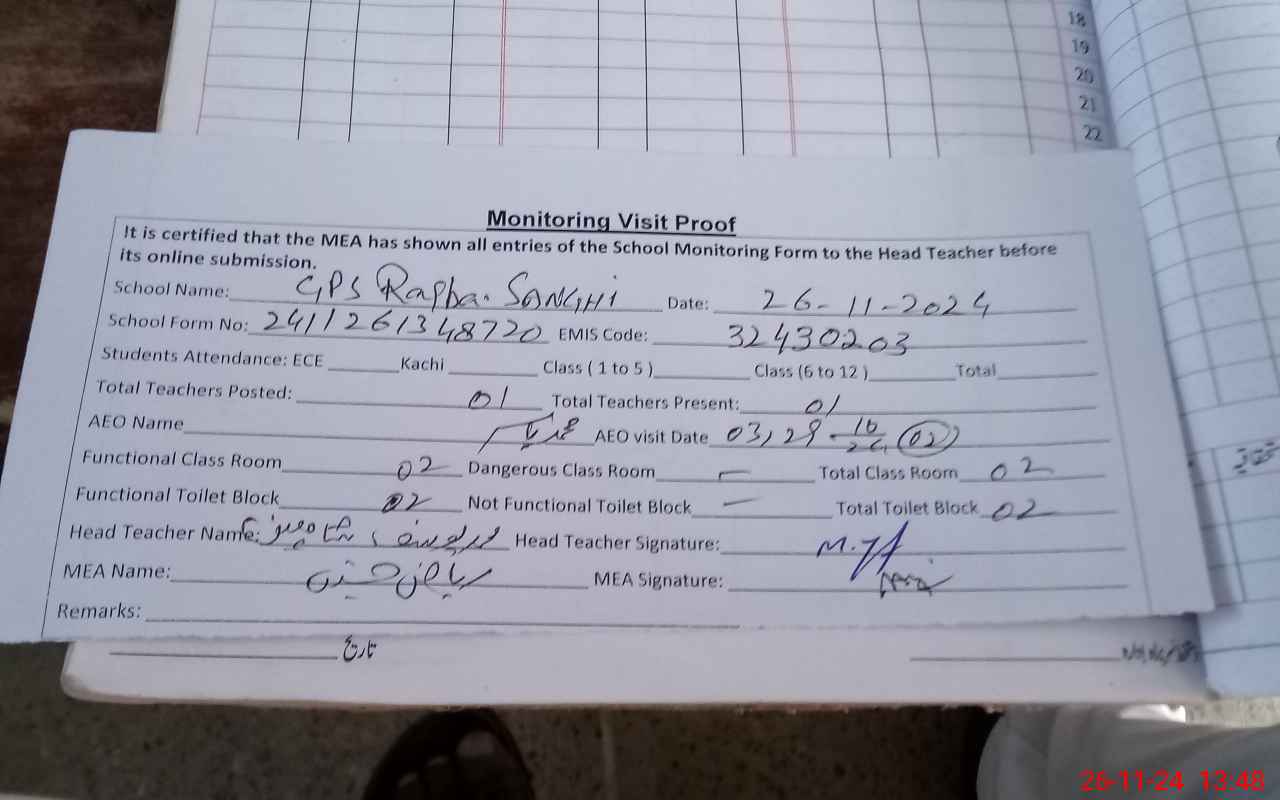 18
19
20
21
22
Monitoring Visit Proof
It is certified that the MEA has shown all entries of the School Monitoring Form to the Head Teacher before
its online submission.
School Name: GPS Ragba. SANGHI Date: 26-11-2024
School Form No: 2411261348720 EMIS Code: 32430203
Students Attendance: ECE ______ Kachi ______ Class ( 1 to 5 ) ______ Class (6 to 12 ) ______ Total ______
Total Teachers Posted: 01 Total Teachers Present: 01
AEO Name AEO visit Date 03, 29 - 10/24 (02)
Functional Class Room 02 Dangerous Class Room — Total Class Room 02
Functional Toilet Block 02 Not Functional Toilet Block — Total Toilet Block 02
Head Teacher Name: Head Teacher Signature:
MEA Name: ریاض حسین MEA Signature:
Remarks:
تاریخ
26-11-24 13:48